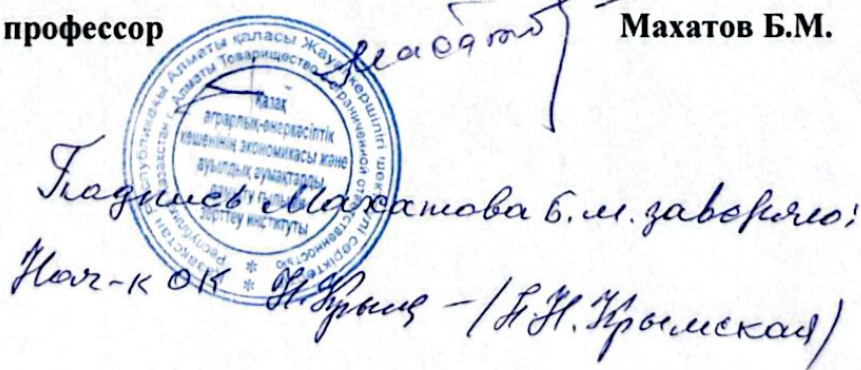 профессор Махатов Б.М.
Махатов
Қазақстан Республикасы Алматы қаласы Жауапкершілігі шектеулі серіктестігі
Республика Казахстан г. Алматы Товарищество с ограниченной ответственностью
Қазақ
аграрлық-өнеркәсіптік
кешенінің экономикасы және
ауылдық аумақтарды
дамыту ғылыми-
зерттеу институты
Подпись Махатова Б.М. заверяю:
Нач-к ОК Н.Крым – (Н.Н. Крымская)